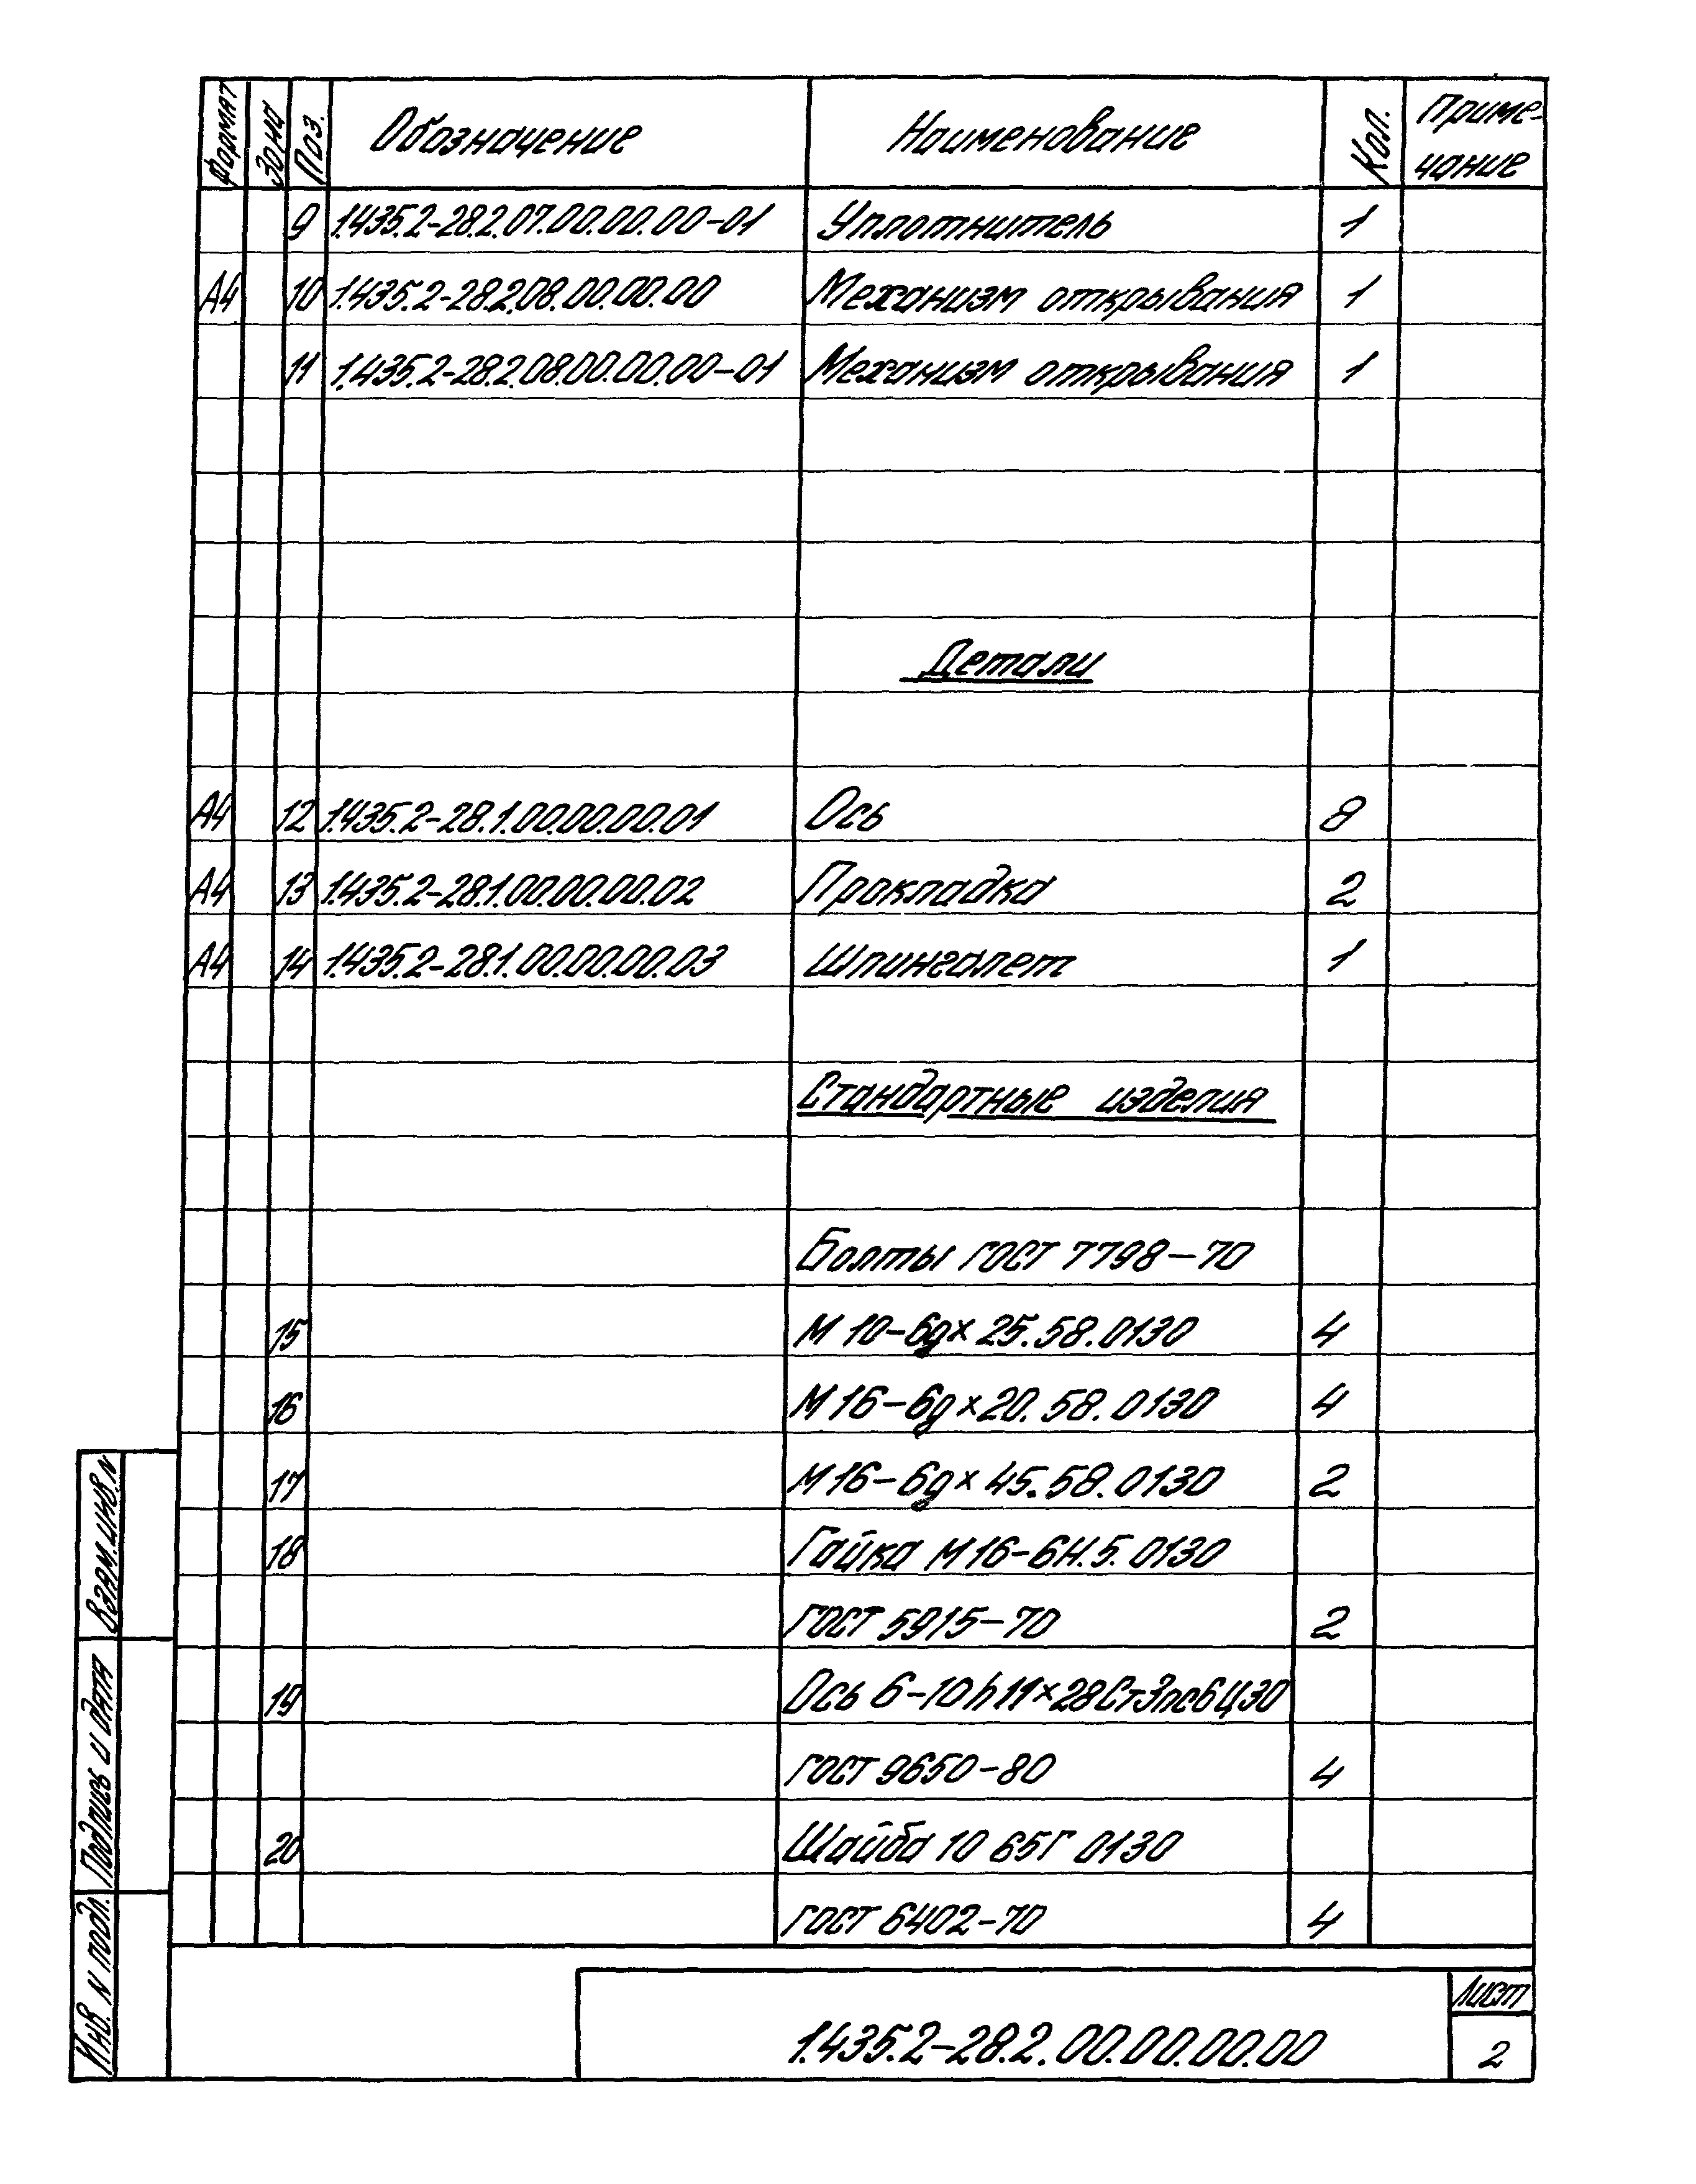 Формат Зона Поз. Обозначение Наименование Кол. Приме-
чание
9 1.435.2-28.2.07.00.00.00-01 Уплотнитель 1
А4 10 1.435.2-28.2.08.00.00.00 Механизм открывания 1
11 1.435.2-28.2.08.00.00.00-01 Механизм открывания 1
Детали
А4 12 1.435.2-28.1.00.00.00.01 Ось 8
А4 13 1.435.2-28.1.00.00.00.02 Прокладка 2
А4 14 1.435.2-28.1.00.00.00.03 Шпингалет 1
Стандартные изделия
Болты ГОСТ 7798-70
15 М 10-6g×25.58.0130 4
16 М16-6g×20.58.0130 4
17 М16-6g×45.58.0130 2
18 Гайка М16-6Н.5.0130
ГОСТ 5915-70 2
19 Ось 6-10h11×28Ст3пс6Ц30
ГОСТ 9650-80 4
20 Шайба 10 65Г 0130
ГОСТ 6402-70 4
Взам. инв. N
Подпись и дата
Инв. N подл.
1.435.2-28.2.00.00.00.00
Лист
2